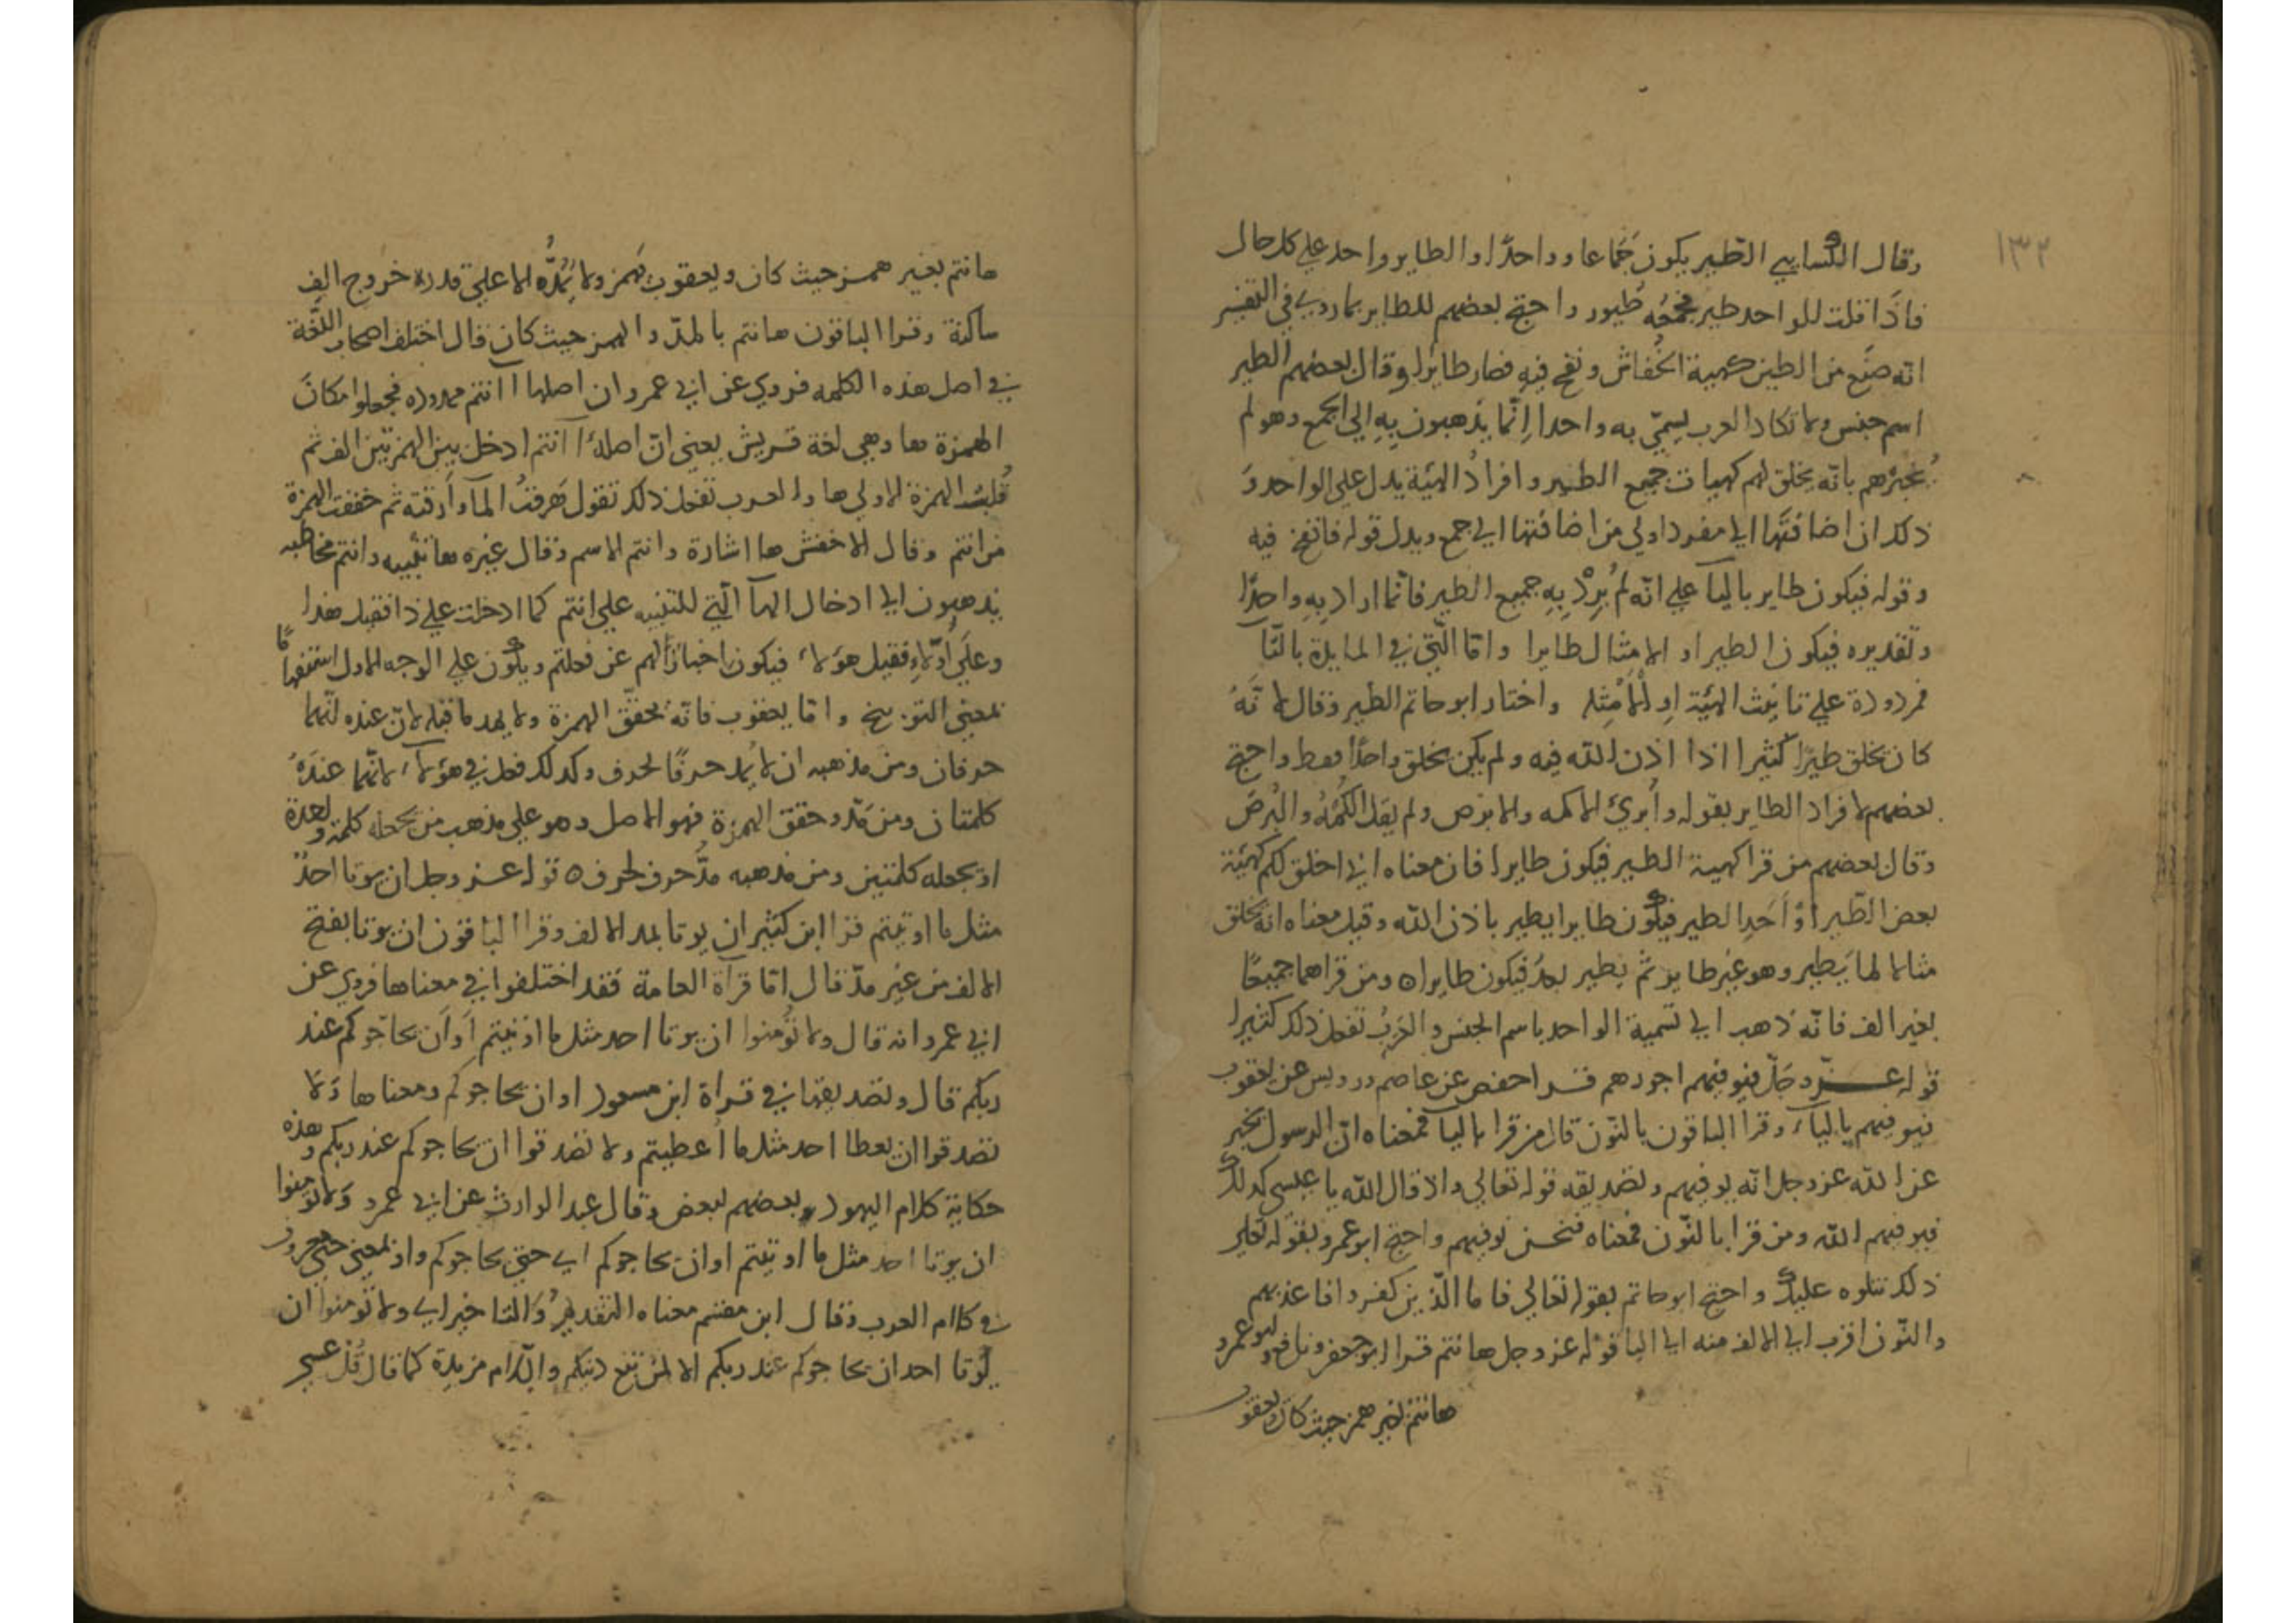 ١٣٢
وقال الكسايي الطير يكون جَمَاعا وواحدًا والطاير واحد علي كل حال
فاذا قلت للواحد طير فجمعُه طُيور واحتج بعضهم للطاير بما روي في التفسير
انه صنَع من الطين كهية الخُفاش ونفخ فيه فصار طايرًا وقال بعضهم الطير
اسم جنس ولا تكاد العرب تسمّي به واحدا اِنّما يذهبون بِهِ الي الجمع وهو لم
يُخبرهم بانّه يخلق لهم كهيات جميع الطير وافرادُ الهيئة يدل علي الواحد وَ
ذلك ان اضافتها الي مفرد اولي من اضافتها الي جمع ويدل قوله فانفخ فيه
وقوله فيكون طاير باليآ علي انّه لم يُرِدْ بِهِ جميع الطير فانّما اراد بِهِ واحدًا
وتقديره فيكون الطير او الامثال طايرا وامّا الّتي في المايدة بالتّآ
فمردودة علي تانيث الهيئة اوِ الأَمْثِله واختار ابو حاتم الطير وقال لانّهُ
كان يخلق طيرًا كثيرا اذا اذن اللّه فيه ولم يكن يخلق واحدًا فقط واحتج
بعضهم لافراد الطاير بقوله وأُبرئُ الاكمه والابرص ولم يقل الكُمْهُ والبُرصَ
وقال بعضهم من قرا كهية الطير فيكون طايرا فان معناه اني اخلق لكم كهيَئة
بعض الطّير أوْ أَحَدِ الطير فيكون طايرا يطير باذن اللّه وقيل معناه انه يخلق
مثالا لها يَطير وهو غير طاير ثم يطير بعدُ فيكون طايرا ٥ ومن قراهما جميعًا
بغير الف فانّه ذهب الي تسمية الواحد باسم الجنس والعَربُ تفعل ذلك كثيرا
قوله عـــزّ وجَلّ فيوفيهم اجورهم قــرا حفص عن عاصم ورويس عن يعقوب
فيوفيهم بالياء وقرا الباقون بالنّون قال من قرا باليآ فمعناه انّ الرسول يخبر
عن اللّه عزوجل انّه يوفيهم وتصديقه قوله تعالي واذ قال اللّه يا عيسي كذلك
فيوفيهم اللّه ومن قرا بالنّون فمعناه فنحن نوفيهم واحتج ابو عمرو بقوله تعلي
ذلك نتلوه عليك واحتج ابو حاتم بقوله تعالي فاما الّذين كفروا فاعذبهم
والنّون اقرب الي الالف منه الي اليا قولُه عزوجل هانتم قــرا ابو جعفر ونافع وابو عمرو
هانتم بغير همز حيث كان ويعقوب
هانتم بغير همــز حيث كان ويعقوب يَهمز ولا يَمُدّه الا علي قدر خروج الِف
ساكنة وقــرا الباقون هانتم بالمدّ والهمز حيث كان قال اختلف اصحاب اللّغة
في اصل هذه الكلمه فروي عن ابي عمرو ان اصلها اانتم ممدوده فجعلوا مكانَ
الهمزة ها وهي لغة قــريش يعني انّ اصلهُ اآنتم ادخل بين الهمزتين الف ثم
قُلبَت الهمزة الاولي ها والعرب تفعل ذلك تقول هَرقتُ المآ وأَرقته ثم خففت الهمزة
من انتم وقال الاخفش ها اشارة وانتم الاسم وقال غيره ها تنبيه وانتم مخاطبه
يذهبون الي ادخال الهآ الّتي للتنبيه علي انتم كما ادخلت علي ذا فقيل هذا
وعَلَي أُولَاءِ فقيل هؤلاء فيكون اخبارًا لهم عن فعلتم ويكون علي الوجه الاول استفهامًا
بمعني التوبيخ وامّا يعقوب فانّه يحقّق الهمزة ولا يمد ما قبله لانّ عنده انّهما
حرفان ومن مذهبه ان لا يُمد حرفًا لحرف وكذلك فعل في هؤلآء لانّهما عندَهُ
كلمتان ومن مَدّ وحقق الهمزة فهو الاصل وهو علي مذهب من يجعله كلمة واحدة
او يجعله كلمتين ومن مذهبه مدُّ حرف لحرف ٥ قوله عــز وجل ان يوتا احدٌ
مثل ما اوتيتم قــرا ابن كثير ان يوتا بمد الالف وقرا الباقون ان يوتا بفتح
الالف من غير مدّ قال امّا قرآة العامة فقد اختلفوا في معناها فروي عن
ابي عمرو انه قال ولا تُومنوا ان يوتا احد مثل ما اوتيتم أَو أَن يحاجوكم عند
ربكم قال وتصديقها في قــراة ابن مسعود او ان يحاجوكم ومعناها وَلا
تصدقوا ان يعطا احد مثل ما اُعطيتم ولا تصدقوا ان يحاجوكم عند ربكم وهذه
حكاية كلام اليهود بعضهم لبعض وقال عبد الوارث عن ابي عمرو وَلا تومنوا
ان يوتا احد مثل ما اوتيتم او ان يحاجوكم اي حتي يحاجوكم واو بمعني حتي معروف
في كلام العرب وقال ابن مقسم معناه التقديمُ وَالتاخير اي ولا تومنوا ان
يُوتا احد ان يحاجوكم عند ربكم الا لمن تبع دينكم والّلام مزيدة كما قال قُل عسي